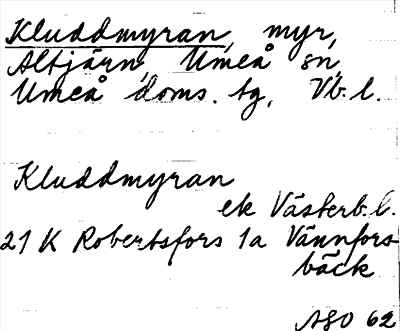 Kluddmyran, myr,
Altjärn, Umeå sn,
Umeå doms. tg, Vb. l.
Kluddmyran
ek Västerb. l.
21 K Robertsfors 1a Vännfors
bäck
ASO 62